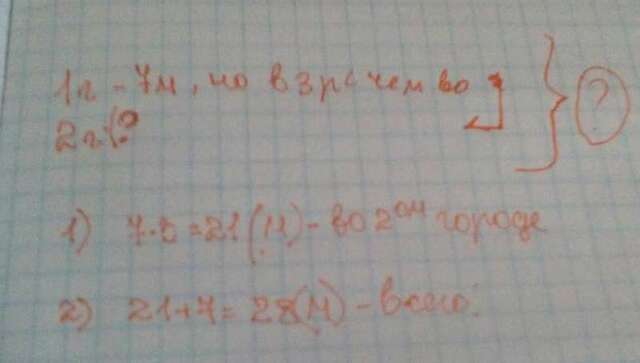 1г - 7м, но в 3р < чем во
2г - ?
?
1) 7·3=21(м) - во 2ом городе
2) 21+7=28(м) - всего.